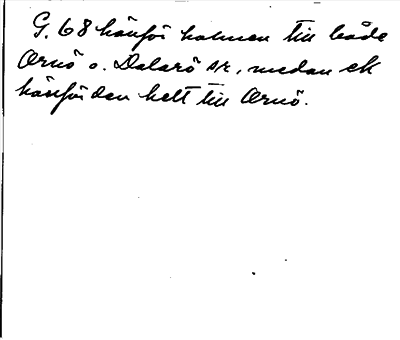 G. 68 hänför holmen till både
Ornö o. Dalarö sk, medan ek
hänför den helt till Ornö.